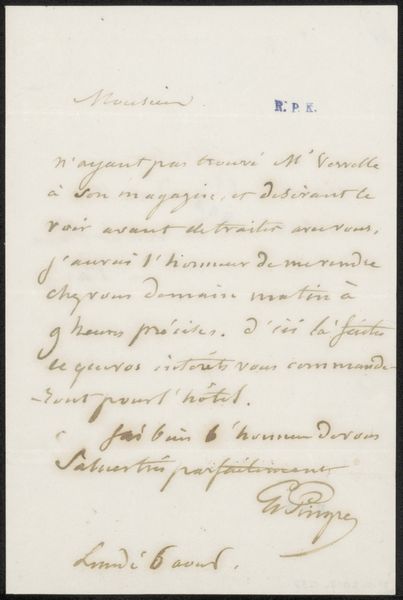 Monsieur
R. P. K.
n'ayant pas trouvé Mr Verrelle
à son magazin, et desirant le
voir avant de traiter avec vous,
j'aurai l'honneur de me rendre
chez vous demain matin à
9 heures précises. d'ici là faites
ce que vos intérêts vous commande-
-ront pour l'hôtel.
j'ai bien l'honneur de vous
saluer très parfaitement
Lundi 6 aout.